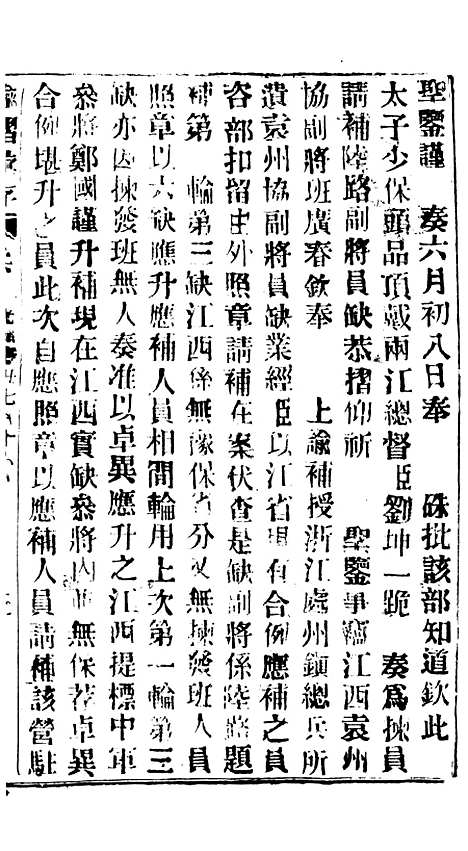 聖鑒謹　奏六月初八日奉　硃批該部知道欽此
太子少保頭品頂戴兩江總督臣劉坤一跪　奏爲揀員
請補陸路副將員缺恭摺仰祈　聖鑒事竊江西袁州
協副將班廣春欽奉　上諭補授浙江處州鎮總兵所
遺袁州協副將員缺業經臣以江省現有合例應補之員
咨部扣留由外照章請補在案伏查是缺副將係陸路題
補第　輪第三缺江西係無豫保省分又無揀發班人員
照章以六缺應升應補人員相間輪用上次第一輪第三
缺亦因揀發班無人奏准以卓異應升之江西提標中軍
參將鄭國謹升補現在江西實缺參將內並無保荐卓異
合例堪升之員此次自應照章以應補人員請補該營駐